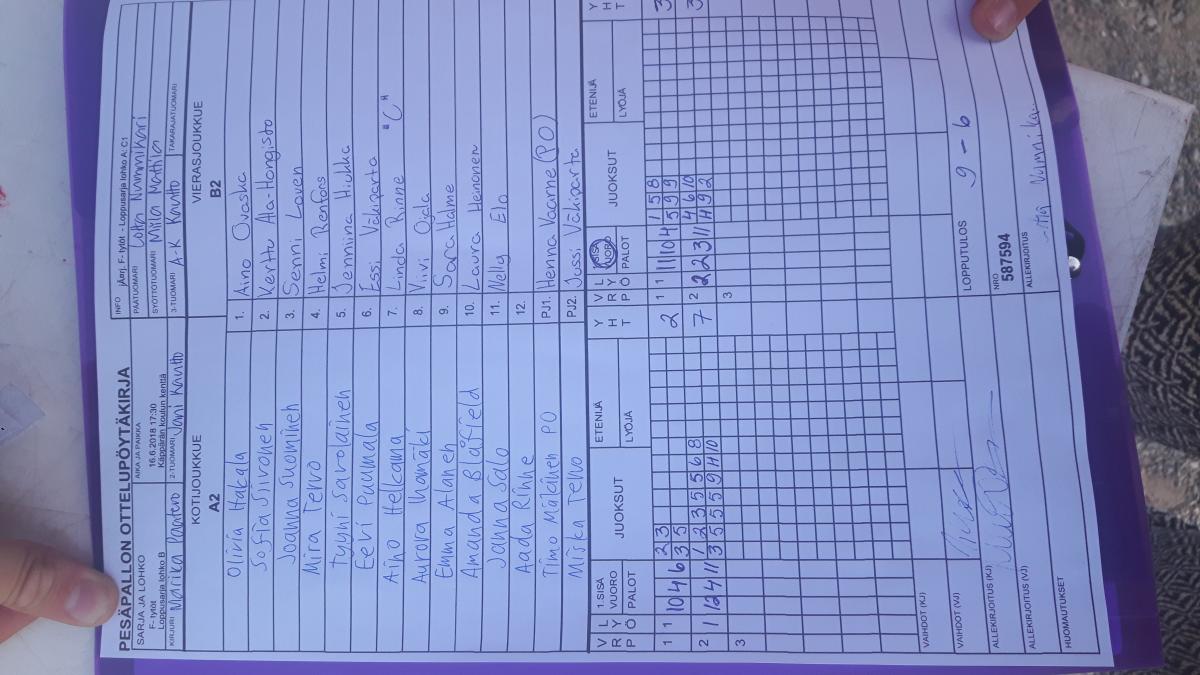 PESÄPALLON OTTELUPÖYTÄKIRJA
SARJA JA LOHKO
F- tytöt
Loppusarja lohko B
AIKA JA PAIKKA
16.6.2018 17:30
Käppärän koulun kenttä
INFO Järj. F- tytöt - Loppusarja lohko A, C1
PÄÄTUOMARI Lotta Nummikari
SYÖTTÖTUOMARI Milla Mattila
KIRJURI Marika
2-TUOMARI Jani Kautto
3-TUOMARI A-K Kautto
TAKARAJATUOMARI
KOTIJOUKKUE
A2
VIERASJOUKKUE
B2
Olivia Hakala 1. Aino Ovaska
Sofia Siivonen 2. Kerttu Ala-Hongisto
Joanna Suominen 3. Senni Laven
Mira Tervo 4. Helmi Renfors
Tyyni Sarolainen 5. Jenniina Hiukka
Eevi Puumala 6. Essi Väkiparta
Aino Helkama 7. Linda Rinne "C"
Aurora Ihamäki 8. Viivi Ojala
Emma Alanen 9. Saara Halme
Amanda Blåfield 10. Laura Heinonen
Janna Salo 11. Nelly Elo
Aada Rinne 12.
Timo Mäkinen PO PJ1. Henna Vaarne (PO)
Miska Tervo PJ2. Jussi Väkiparta
V R P L Y Ö 1.SISÄ VUORO PALOT JUOKSUT ETENIJÄ LYÖJÄ Y H T V R P L Y Ö 1.SISÄ VUORO PALOT JUOKSUT ETENIJÄ LYÖJÄ Y H T
1 1 10 4 6 2 3 2 1 1 11 10 4 1 5 8 3
3 5 5 9 9
2 1 12 4 11 1 2 3 5 5 6 8 7 2 2 2 3 11 4 6 10 3
3 5 5 5 9 11 10 11 9 2
3 3
VAIHDOT (KJ)
VAIHDOT (VJ)
LOPPUTULOS 9 - 6
ALLEKIRJOITUS (KJ)
NRO
587594
ALLEKIRJOITUS (VJ)
ALLEKIRJOITUS
HUOMAUTUKSET